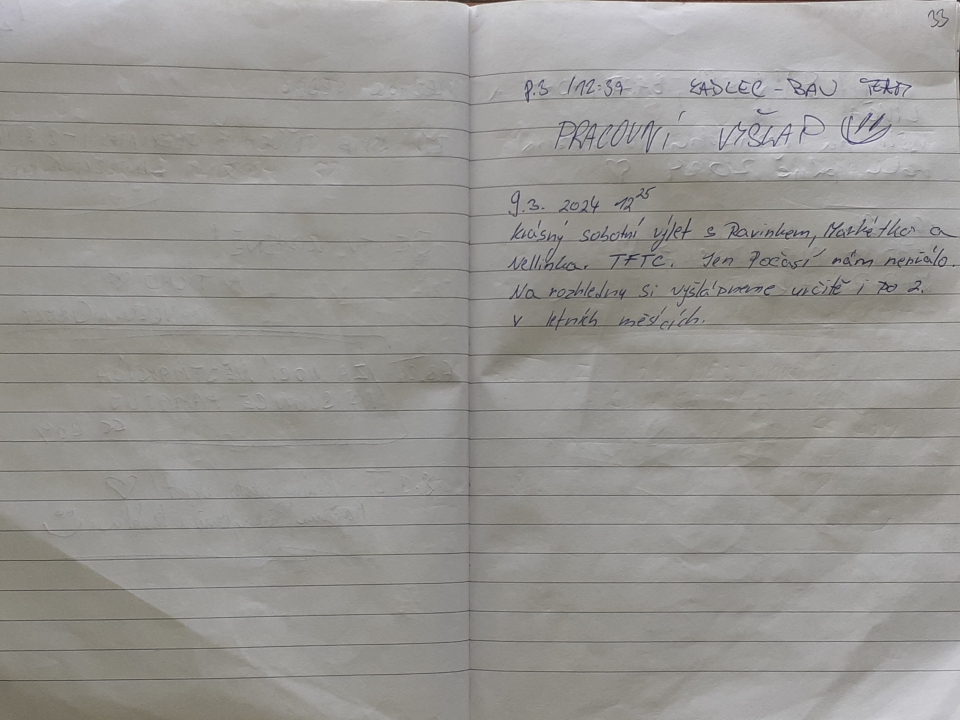 33
8.3 /12:37 KADLEC-BAU TEAM
PRACOVNÍ VÝŠLAP
9.3. 2024 12 25
Krásný sobotní výlet s Pavinkem, Markétkou a
Nellinkou. TFTC. Jen Počasí nám nepřálo.
Na rozhledny si vyšlápneme určitě i po 2.
v letních měsících.